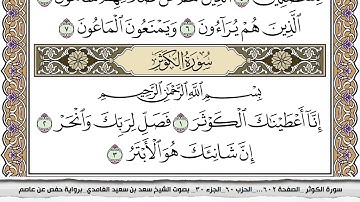 ٱلَّذِينَ هُمْ يُرَآءُونَ ٦ وَيَمْنَعُونَ ٱلْمَاعُونَ ٧
سُورَةُ الكَوْثَرِ
بِسْمِ ٱللَّهِ ٱلرَّحْمَٰنِ ٱلرَّحِيمِ
إِنَّآ أَعْطَيْنَٰكَ ٱلْكَوْثَرَ ١ فَصَلِّ لِرَبِّكَ وَٱنْحَرْ ٢
إِنَّ شَانِئَكَ هُوَ ٱلْأَبْتَرُ ٣
سورة الكوثر _الصفحة ٦٠٢...الحزب ٦٠_الجزء ٣٠_ بصوت الشيخ سعد بن سعيد الغامدي برواية حفص عن عاصم